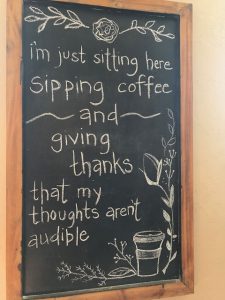 i'm just sitting here
sipping coffee
and
giving
thanks
that my
thoughts aren't
audible